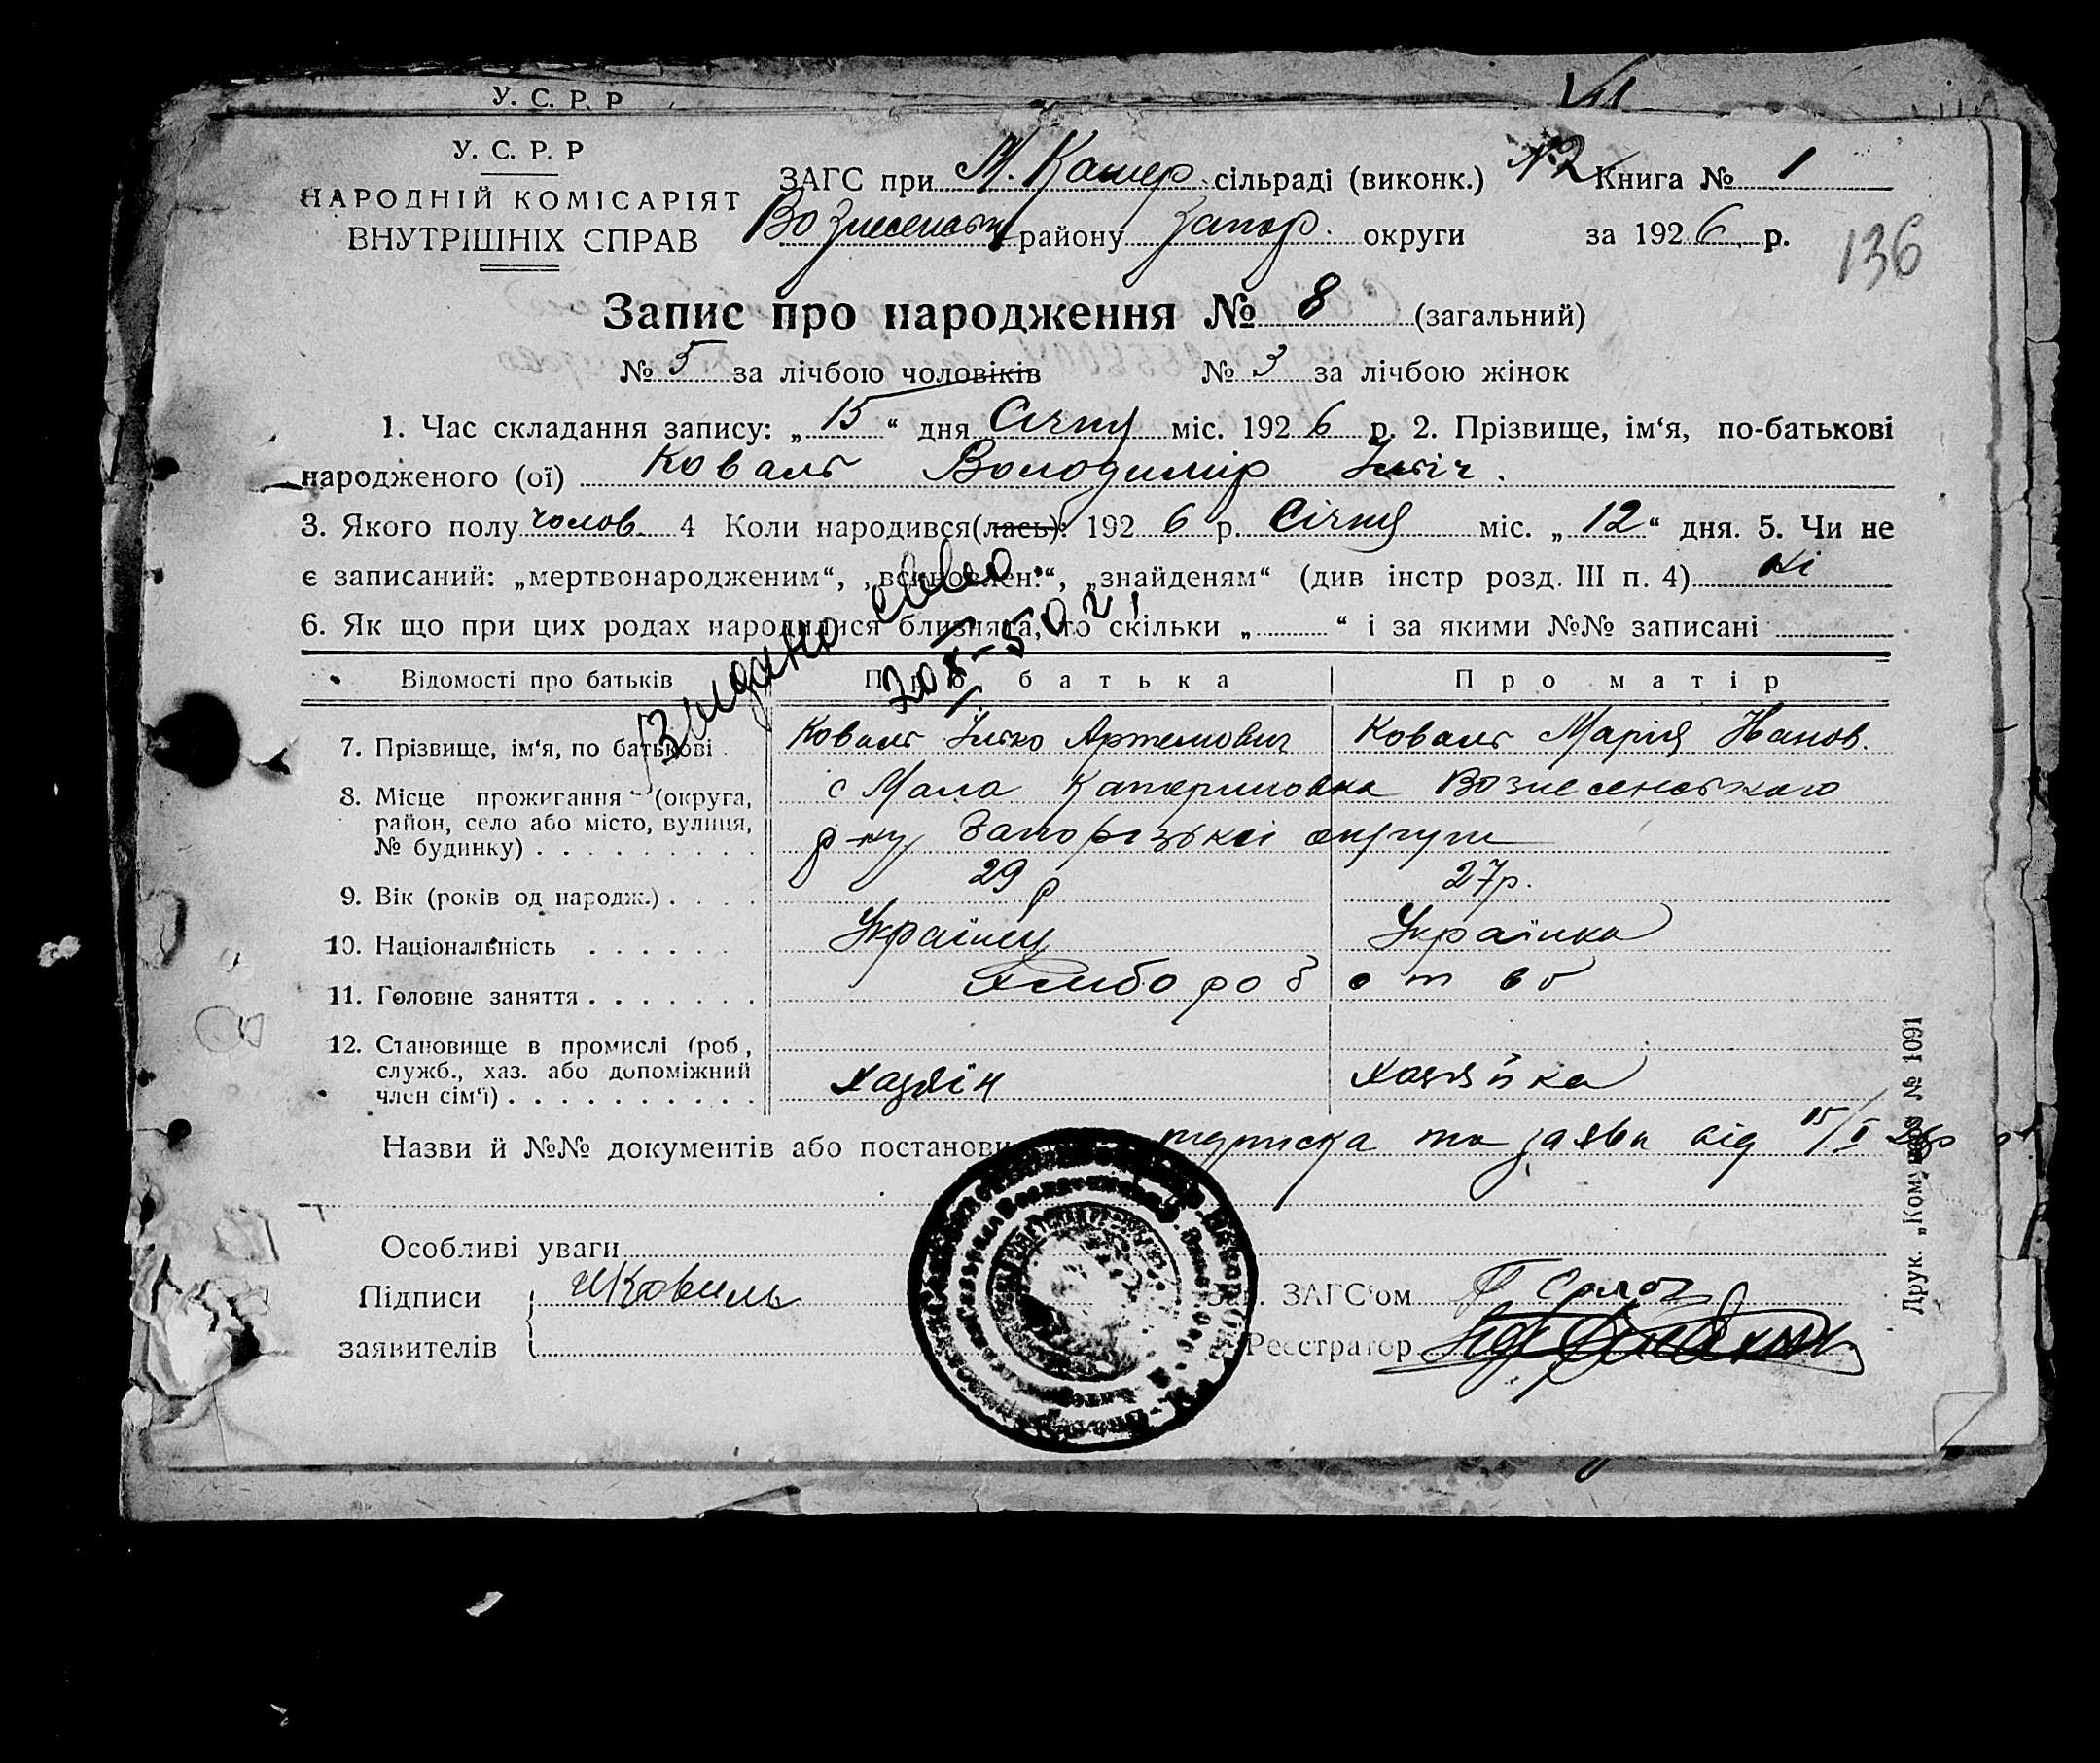 У. С. Р. Р
У. С. Р. Р
НАРОДНІЙ КОМІСАРІЯТ
ВНУТРІШНІХ СПРАВ
ЗАГС при М. Катер. сільраді (виконк.) № 2 Книга № 1
Вознесенськ району Запор. округи за 1926 р.
136
Запис про народження № 8 (загальний)
№ 5 за лічбою чоловіків № 3 за лічбою жінок
1. Час складання запису: „15“ дня Січня міс. 1926 р. 2. Прізвище, ім‘я, по-батькові
народженого (ої) Коваль Володимір Ільіч.
3. Якого полу чолов. 4 Коли народився(лась): 1926 р. Січня міс. „12“ дня. 5. Чи не
є записаний: „мертвонародженим“, „всиновлен.“, „знайденям“ (див інстр розд. III п. 4) ні
6. Як що при цих родах народилися близнята, то скільки „ “ і за якими №№ записані
Видано
Відомості про батьків Про батька Про матір
7. Прізвище, ім‘я, по батькові Коваль Ілько Артемович Коваль Марія Іванов.
8. Місце прожигання (округа, с Мала Катериновка Вознесенського
район, село або місто, вулиця,
№ будинку) р-ну Запорізькоі округи
9. Вік (років од народж.) 29 р 27 р.
10. Національність Українец Українка
11. Головне заняття Хлиборобство
12. Становище в промислі (роб,
служб., хаз. або допоміжний
член сім‘ї) Хазяїн Хазяйка
Назви й №№ документів або постанови підписка та заява від 15/I
Особливі уваги
Підписи ИКоваль Зав. ЗАГС‘ом
заявителів Реєстратор
Друк. „Комунар № 1091